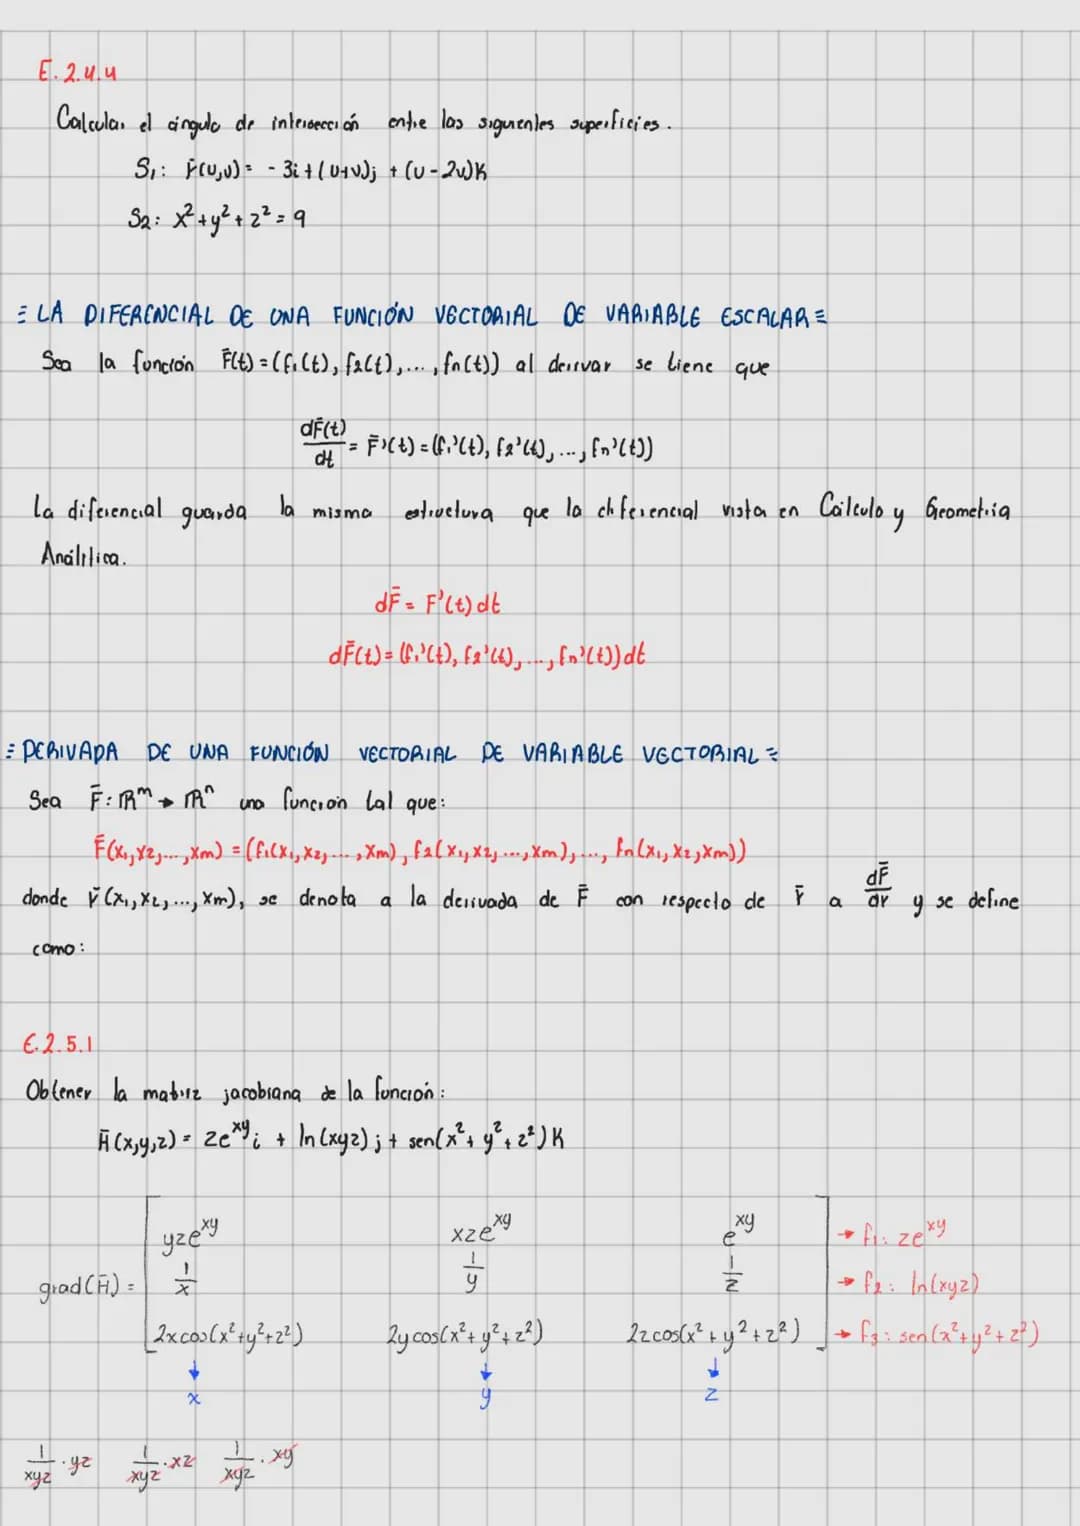 E. 2.4.4
Calcular el ángulo de intersección entre las siguientes superficies.
S₁: r̄(u,v) = - 3i + (u+v)j + (u - 2v)k
S₂: x² + y² + z² = 9
= LA DIFERENCIAL DE UNA FUNCIÓN VECTORIAL DE VARIABLE ESCALAR =
Sea la función F̄(t) = (f₁(t), f₂(t), ..., fn(t)) al derivar se tiene que
dF̄(t)/dt = F̄'(t) = (f₁'(t), f₂'(t), ..., fn'(t))
La diferencial guarda la misma estructura que la diferencial vista en Cálculo y Geometría
Analítica.
dF̄ = F'(t) dt
dF̄(t) = (f₁'(t), f₂'(t), ..., fn'(t)) dt
= DERIVADA DE UNA FUNCIÓN VECTORIAL DE VARIABLE VECTORIAL =
Sea F̄: ℝᵐ → ℝⁿ una función tal que:
F̄(x₁, x₂, ..., xm) = (f₁(x₁, x₂, ..., xm), f₂(x₁, x₂, ..., xm), ..., fn(x₁, x₂, xm))
donde r̄ (x₁, x₂, ..., xm), se denota a la derivada de F̄ con respecto de r̄ a dF̄/dr y se define
como:
E. 2.5.1
Obtener la matriz jacobiana de la función:
H̄(x,y,z) = ze^xy i + ln(xyz) j + sen(x² + y² + z²) k
yze^xy xze^xy e^xy → f₁: ze^xy
grad(H̄) = 1/x 1/y 1/z → f₂: ln(xyz)
2xcos(x²+y²+z²) 2ycos(x²+y²+z²) 2zcos(x²+y²+z²) → f₃: sen(x²+y²+z²)
↓ ↓ ↓
x y z
1/xyz · yz 1/xyz · xz 1/xyz · xy